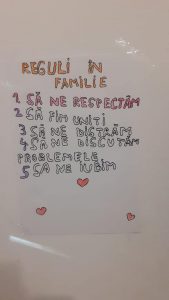 REGULI ÎN
FAMILIE
1 SĂ NE RESPECTĂM
2 SĂ FIM UNITI
3 SĂ NE DISTRĂM
4 SĂ NE DISCUTĂM
PROBLEMELE
5 SĂ NE IUBIM